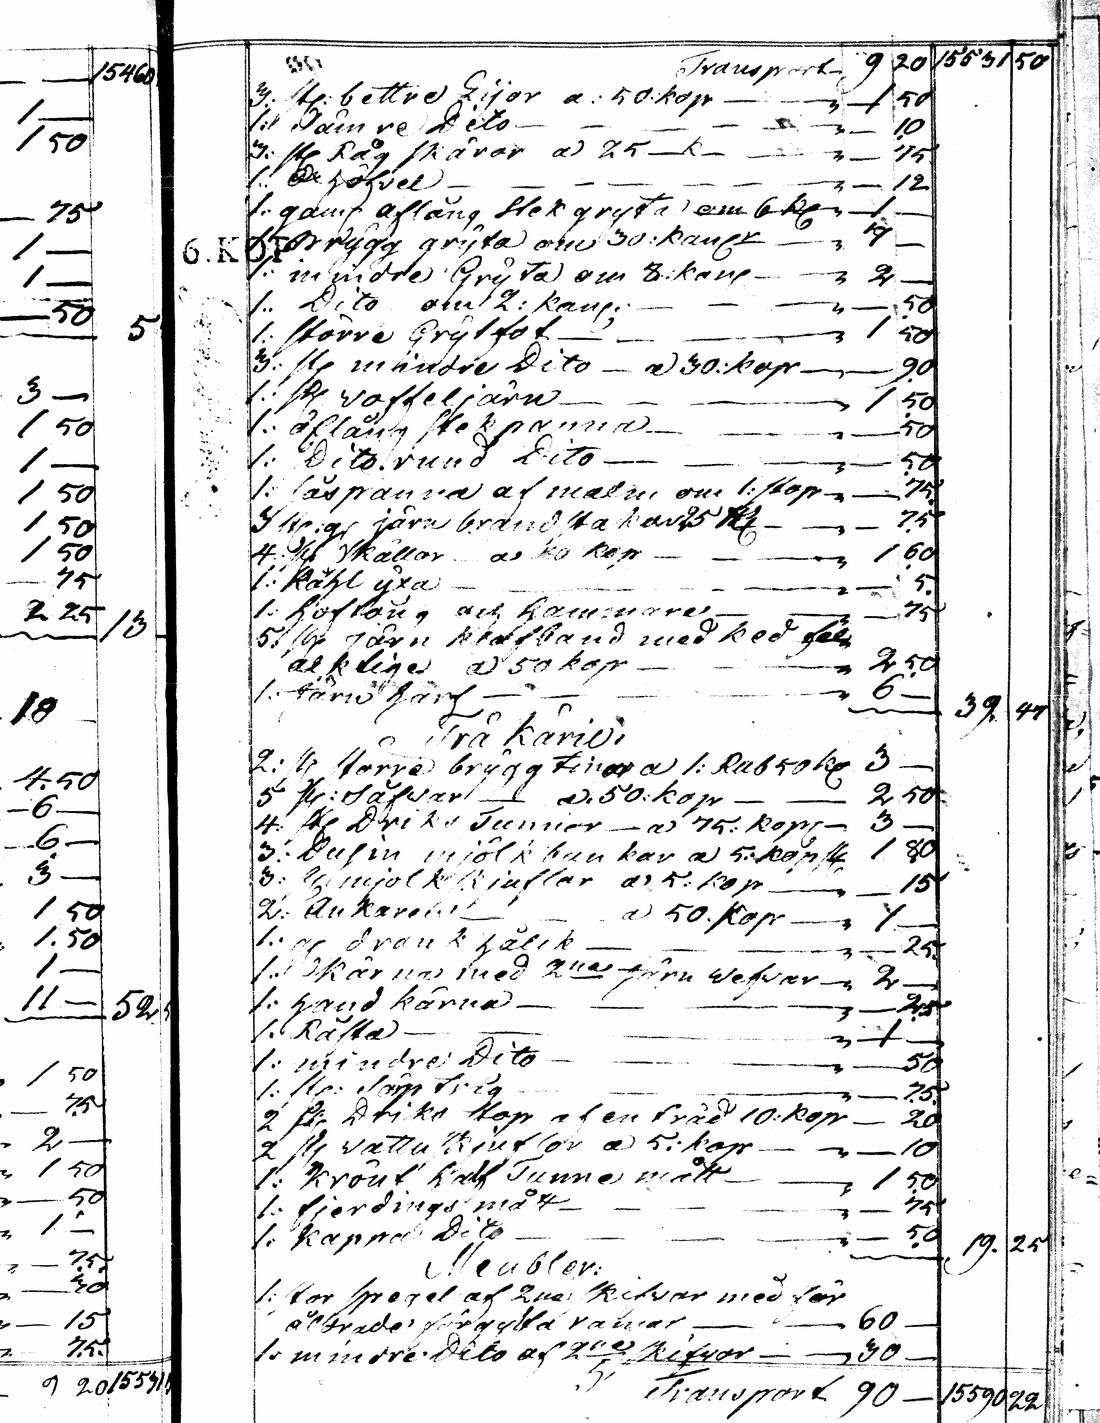 Transport 9 20 15531 50
3: st: bettre Lijor a: 50: kop 1 50
1: Sämre Dito 10
3: st Råg skäror a 25 k 75
1: 12
1: gam aflång stek gryta om 6 1
1: Brygg gryta om 30: kan 7
6. KOP
1: mindre Gryta om 8: kan 2
1: Dito om 2: kan; 50
1: större Grytfot 1 50
3: st mindre Dito a 30: kop 90
1: st woffeljärn 1 50
1: aflång stekpanna 50
1: Dito. rund Dito 50
1: såspanna af malm om 1: stop 75
3 st: g: järn brandstakar 25 75
4: st skållor a 40 kop 1 60
1: Kåhl yxa 5
1: hoftång och hammare 75
5: st järn klafband med ked fel
aktige a 50 kop 2 50
1: Järn härf 6 39. 47
Trä Käril.
2: st större brygg tinor a 1: Rub 50 k 3
5 st: Såfvar a. 50: kop 2 50
4: st Driks Tunnor a 75: kop 3
3: Dusin mjölk bunkar a 5: kop st 1 80
3: st mjölk skinflor a 5: kop 15
2: Ankaren a 50. kop 1
1: g drank hålck 25
1: Skärna med 2ne järn wefvar 2
1: hand kärna 25
1: Rästa 1
1: mindre Dito 50
1: st: Såp trig 75
2 st Driks stop af en träd 10: kop 20
2 st wattu skinflor a 5: kop 10
1: Krönt half Tunne mått 1 50
1: fjerdings mått 75
1: kappa Dito 50 19. 25
Meubler:
1: stor spegel af 2ne skifvor med för
åldrade förgylta ramar 60
1: mindre Dito af 2ne skifvor 30
Transport 90 15590 22
15460
1
1 50
75
1
1
50 5
3
1 50
1
1 50
1 50
1 50
75
2 25 13
18
4. 50
6
6
3
1 50
1. 50
1
11 52
1 50
75
2
1 50
50
1
75.
30
15
75.
9 20 15531